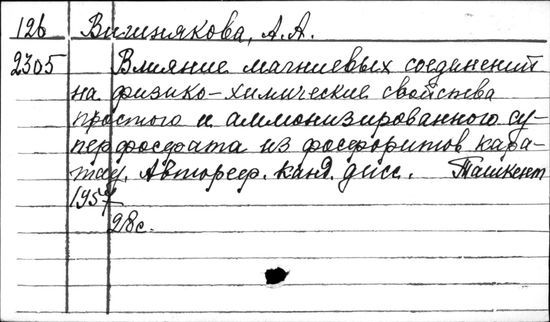 126 Вишнякова, А.А.
2305 Влияние магниевых соединений
на физико-химические свойства
простого и аммонизированного су-
перфосфата из фосфоритов Кара-
тау. Автореф. канд. дисс. Ташкент
1957
28с.